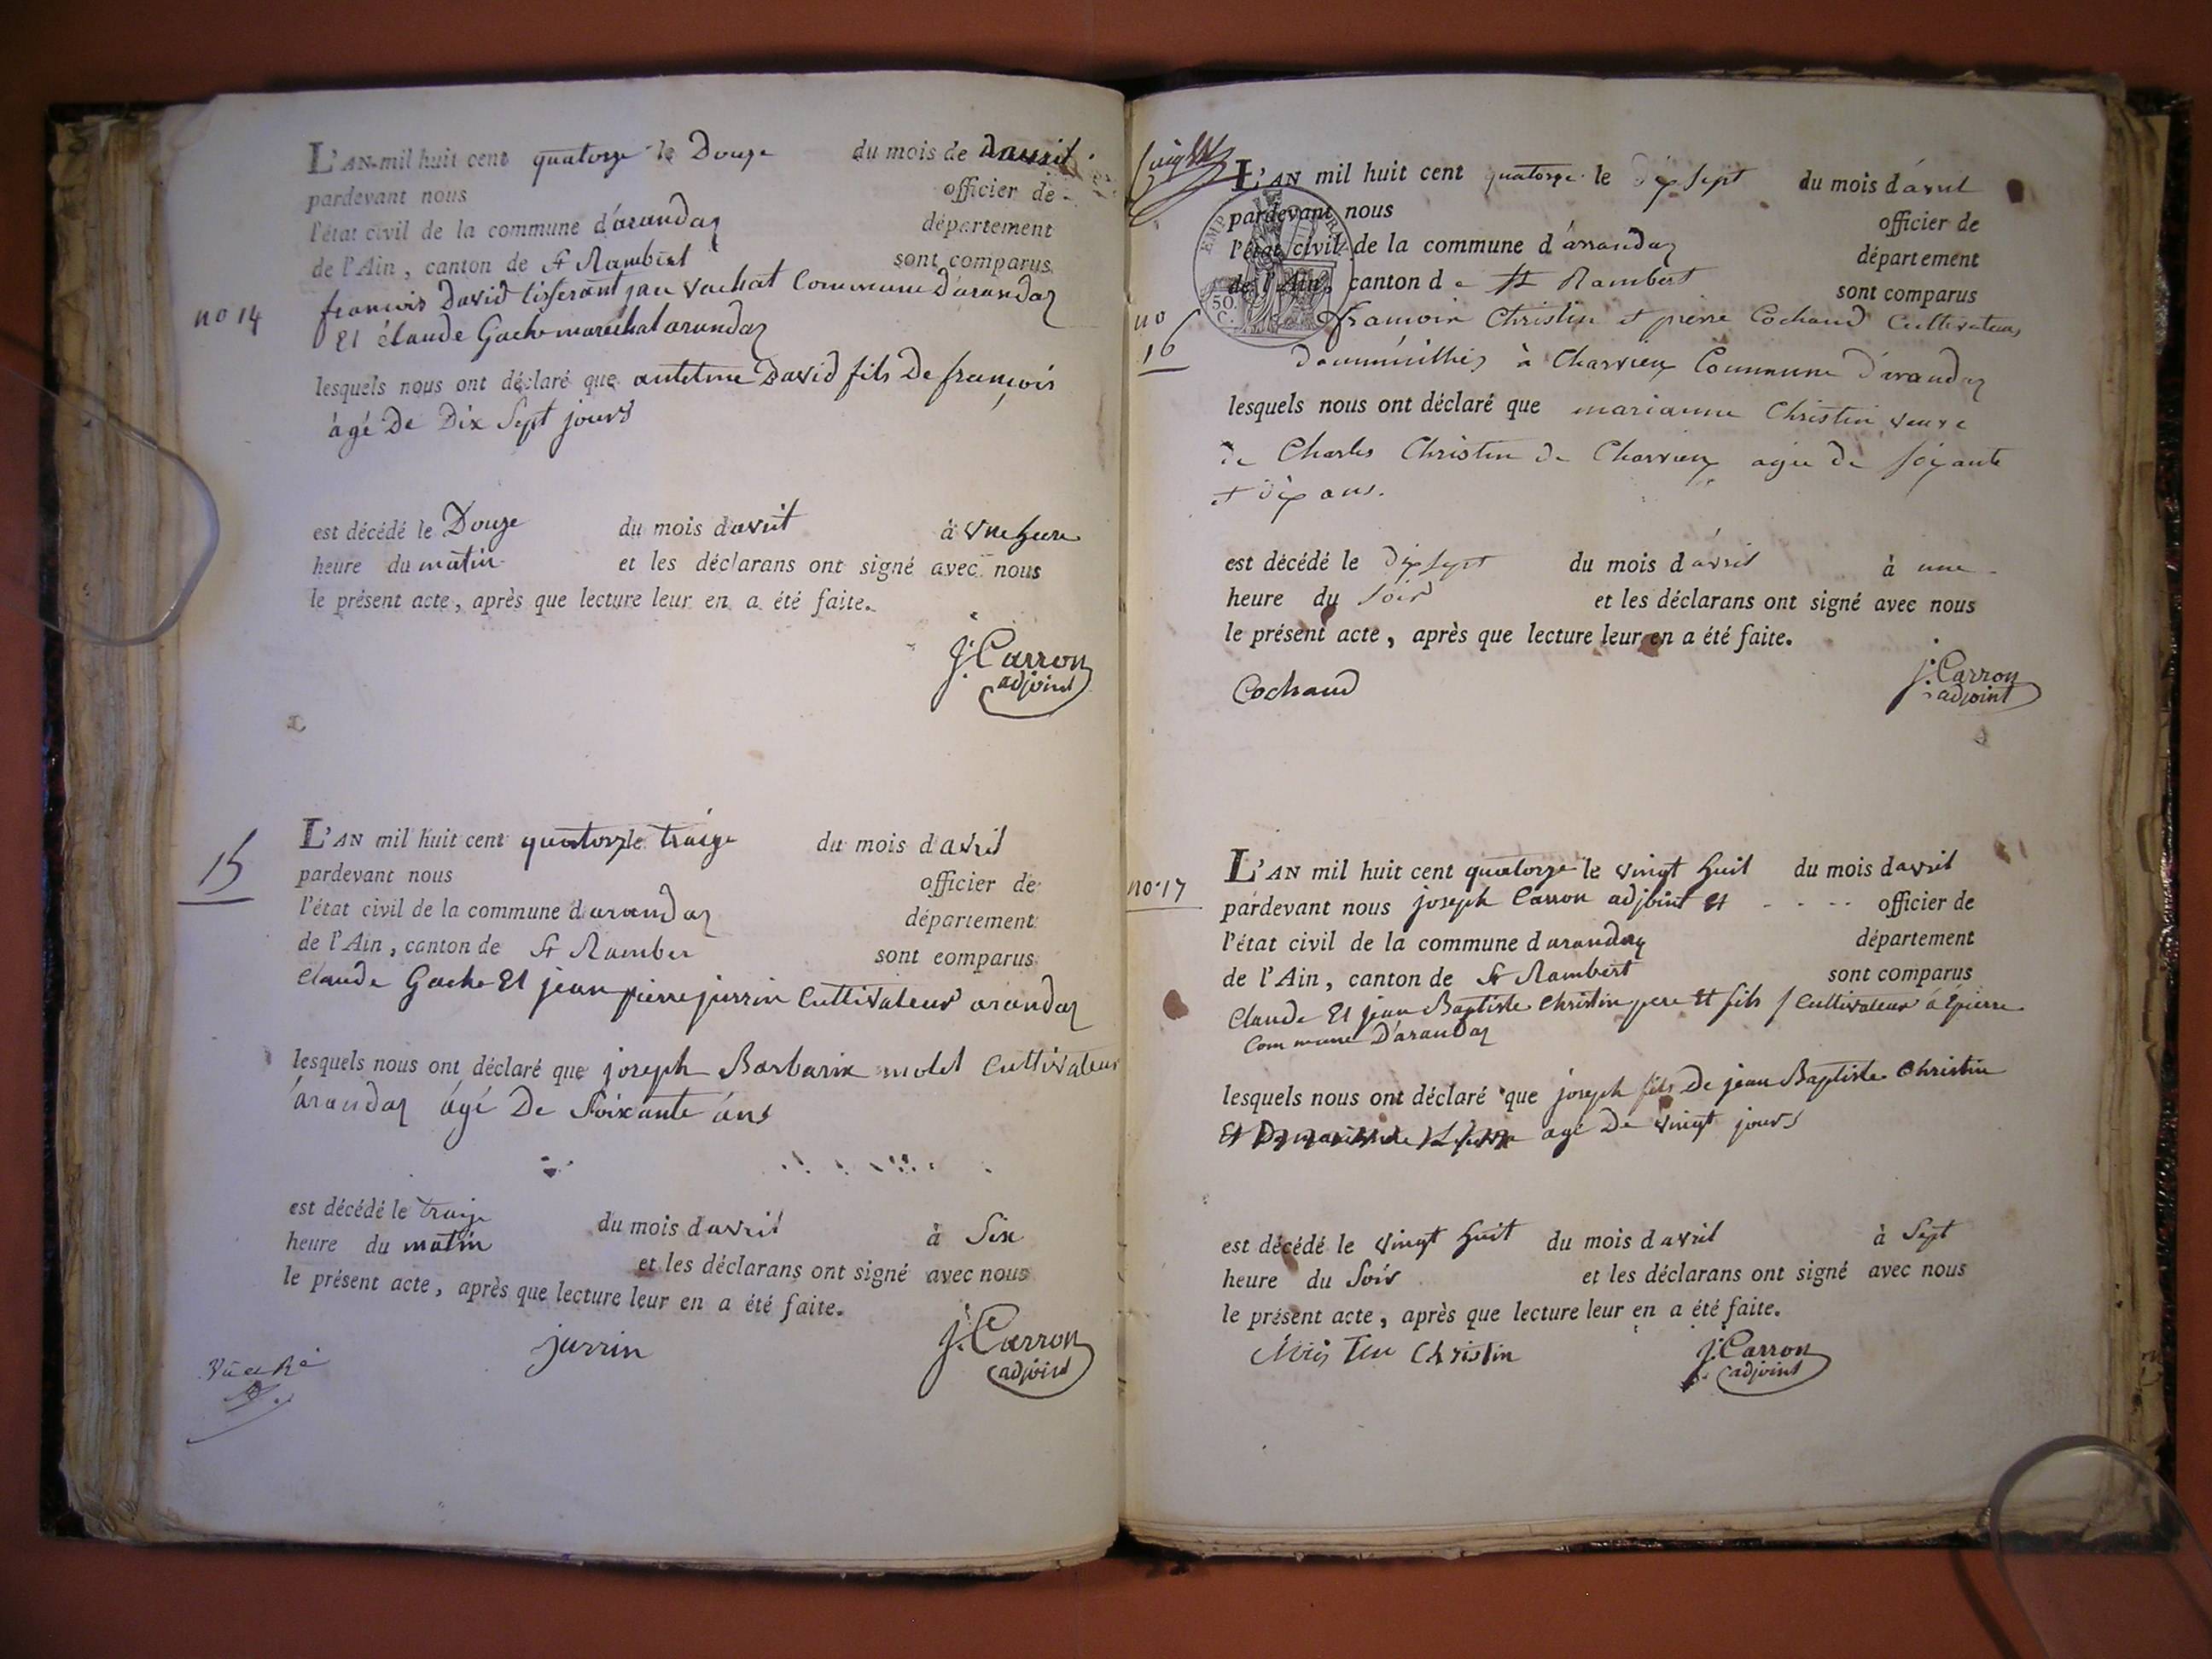 L'AN mil huit cent quatorze le Douze du mois de davril
pardevant nous officier de
l'état civil de la commune d'arandaz département
de l'Ain, canton de St Rambert sont comparus
no 14
francois David tisserant au vachat Commune d'arandaz
Et Claude Gache marechal arandaz
lesquels nous ont déclaré que antelme David fils De françois
àgé De Dix Sept jours
est décédé le Douze du mois davril à vne heure
heure du matin et les déclarans ont signé avec nous
le présent acte, après que lecture leur en a été faite.
J. Carron
adjoint
15
L'AN mil huit cent quatorz le traize du mois d avril
pardevant nous officier de
l'état civil de la commune d arandaz département
de l'Ain, canton de St Ramber sont comparus
Claude Gache Et jean pierre jurrin Cultivateur arandaz
lesquels nous ont déclaré que joseph Barbarin molet Cultivateur
àrandaz ágé De Soixante áns
est décédé le traize du mois d avril à Six
heure du matin et les déclarans ont signé avec nous
le présent acte, après que lecture leur en a été faite.
jurrin J. Carron
adjoint
L'AN mil huit cent quatorze le dix sept du mois d'avril
pardevant nous officier de
l'état civil de la commune d'arrandaz département
de l'Ain, canton de St Rambert sont comparus
50 C.
no 16
francois Christin et pierre Cochaud Cultivateurs
dommicilliés à Charvieux Commune d'arandaz
lesquels nous ont déclaré que marianne Christin veuve
de Charles Christin de Charvieux agée de soixante
et dix ans.
est décédé le dix sept du mois d'avril à une
heure du Soir et les déclarans ont signé avec nous
le présent acte, après que lecture leur en a été faite.
Cochaud J. Carron
adjoint
no. 17
L'AN mil huit cent quatorze le vingt huit du mois d avril
pardevant nous joseph Carron adjoint Et officier de
l'état civil de la commune d arandaz département
de l'Ain, canton de St Rambert sont comparus
Claude Et jean Baptiste Christin pere Et fils / Cultivateur à Epierre
Commune D'arandaz
lesquels nous ont déclaré que joseph fils De jean Baptiste Christin
agé De vingt jours
est décédé le vingt huit du mois d avril à Sept
heure du Soir et les déclarans ont signé avec nous
le présent acte, après que lecture leur en a été faite.
Christin J. Carron
adjoint